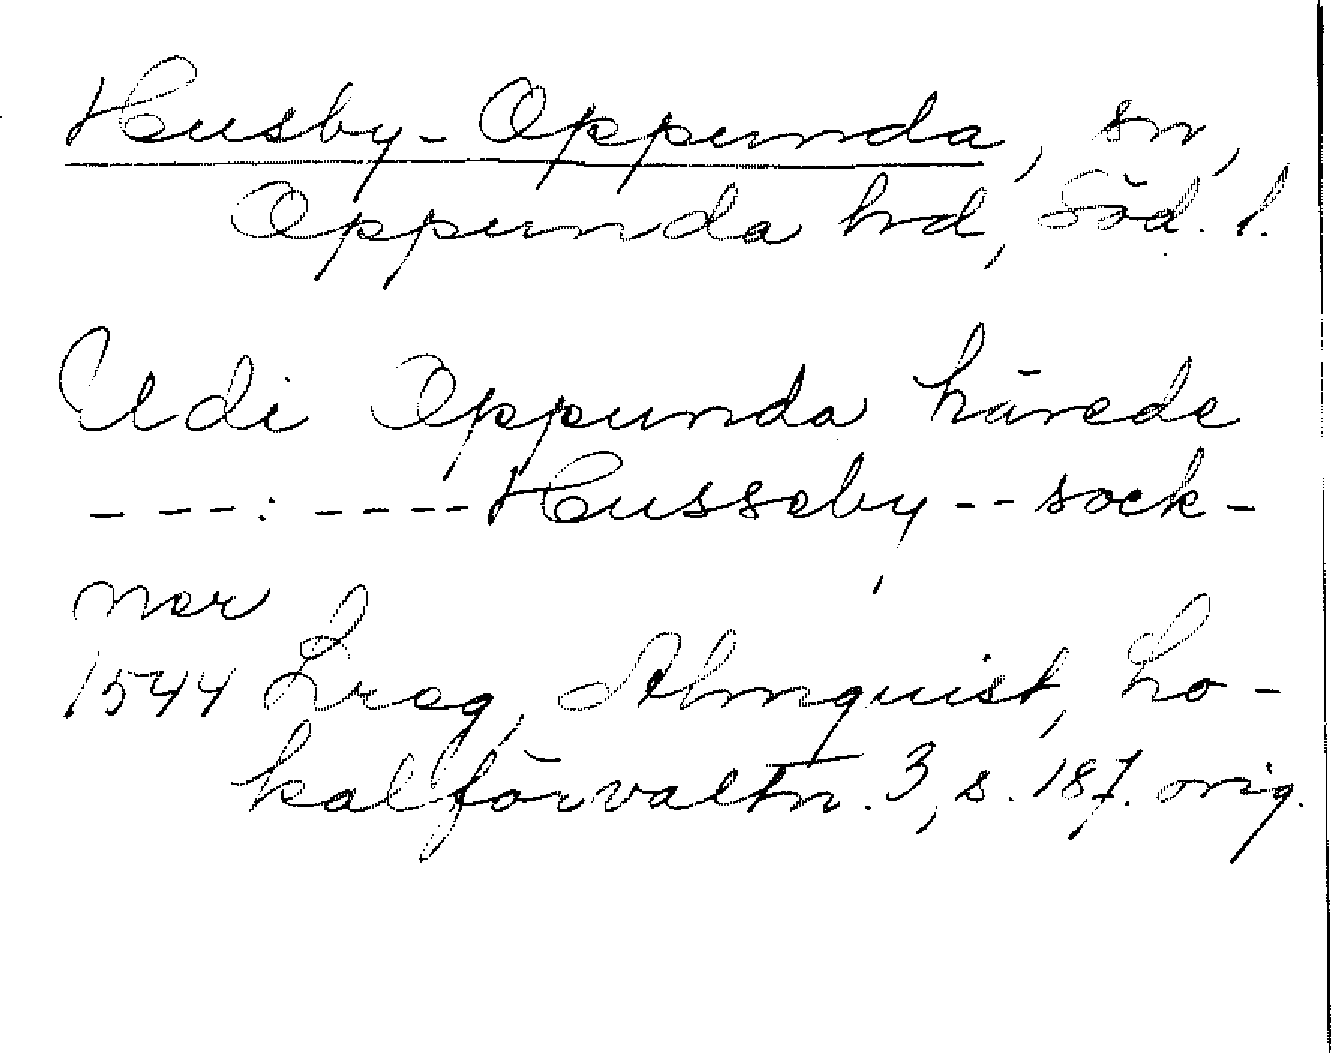 Husby-Oppunda, sn,
Oppunda hd, Söd. l.
Udi Oppunda härede
---:----Husseby--sock-
ner
1544 Lreg, Almquist, Lo-
kalförvaltn. 3, s. 187. orig.